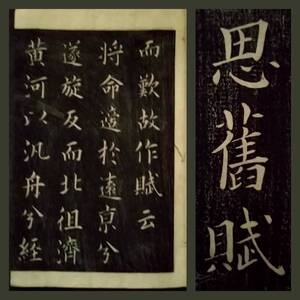 思舊賦
而歎故作賦云
將命適於遠亰兮
遂旋反而北徂濟
黃河以汎舟兮經